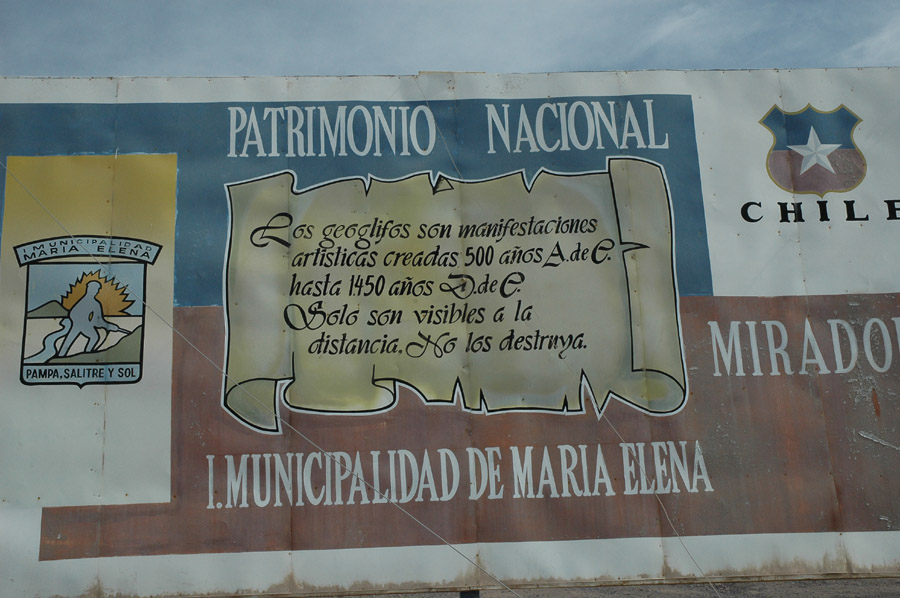 PATRIMONIO NACIONAL
I. MUNICIPALIDAD
MARIA ELENA
PAMPA, SALITRE Y SOL
Los geoglifos son manifestaciones
artisticas creadas 500 años A. de C.
hasta 1450 años D. de C.
Solo son visibles a la
distancia. No los destruya.
CHILE
MIRADO
I. MUNICIPALIDAD DE MARIA ELENA